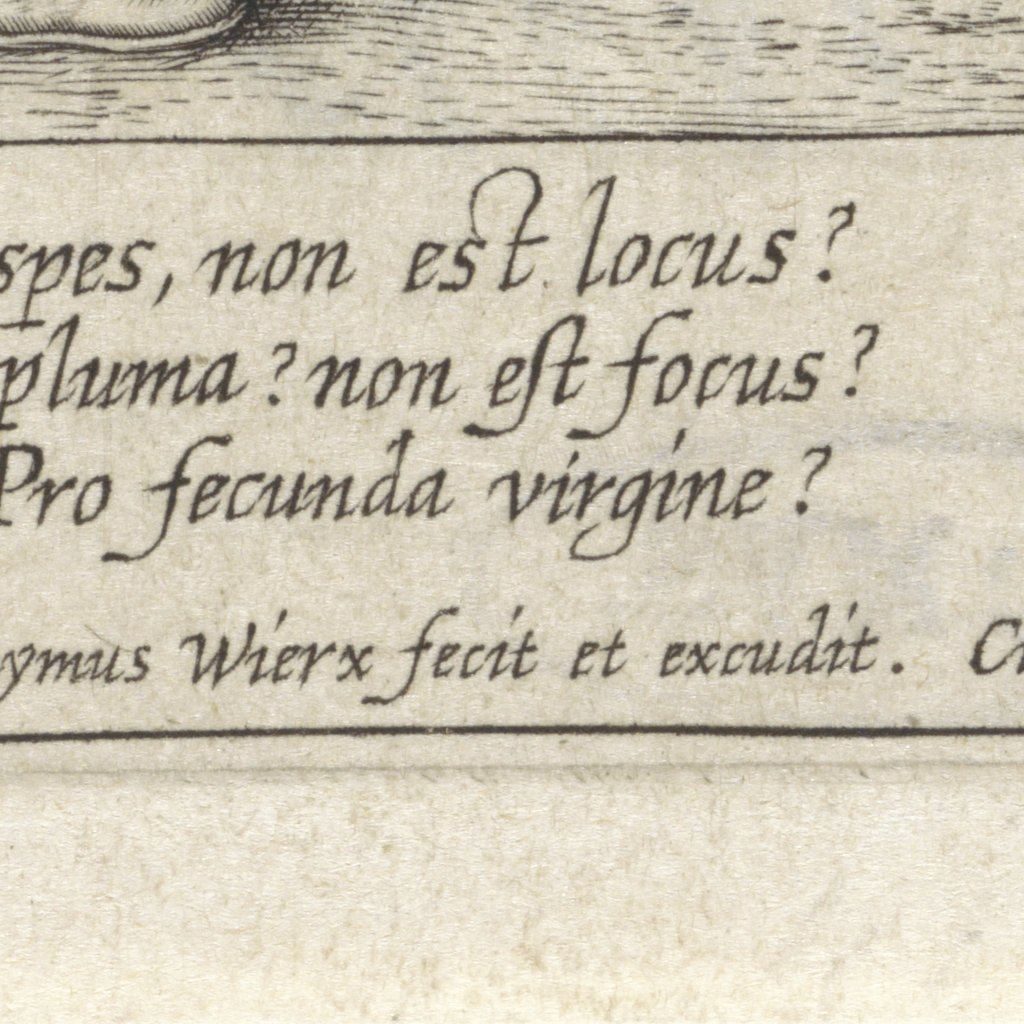 spes, non est locus?
pluma? non est focus?
Pro fecunda virgine?
ymus Wierx fecit et excudit. C